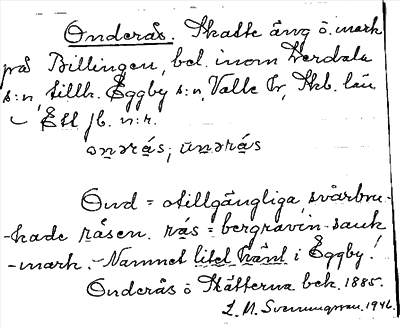 Onderås. Skatte äng ö. mark
på Billingen, bel. inom Lerdala
s:n, tillh. Eggby s:n, Valle hr, Skb. län
– Ett jb. n:r.
ɔnərås; ünərås
Ond = otillgängliga, svårbru-
-kade råsen. rås = bergravin-sank
-mark. – Namnet litet känt i Eggby!
Onderås ö Stätterna bek. 1885.
L. M. Svenungsson. 1946.